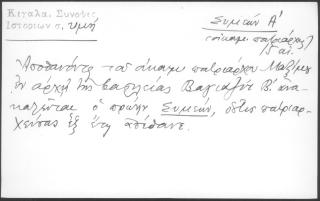 Κιγάλα. Συνοψις
Ιστοριων σ. υμή
Συμεών Α'
(οἰκουμ. πατριάρχης)
15 αἰ.
Ἀποθανόντος τοῦ οἰκουμ. πατριάρχου Μαξίμου
ἐν ἀρχῇ τῆς βασιλείας Βαγιαζὴτ Β' ἀνα-
καλεῖται ὁ πρώην Συμεών, ὅστις πατριαρ-
χεύσας ἓξ ἔτη ἀπέθανε.